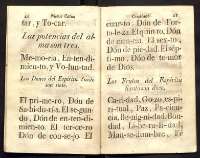 tar, y To-car.
Las potencias del al-
ma son tres.
Me-mo-ria, En-ten-di-
mien-to, y Vo-lun-tad.
El pri-me-ro, Don de
Sa-bi-du-ria. El se-gun-
do, Don de en-ten-di-
mien-to. El ter-ce-ro,
Don de con-se-jo. El
cuar-to, Don de For-
ta-le-za. El quin-to, Don
de cien-cia. El sex-to,
Don de pie-dad. El sép-
ti-mo, Don de te-mor
de Dios.
Los Frutos del Espíritu
Ca-ri-dad, Go-zo es-pi-
ri-tual, Paz, Pa-cien-
cia, Be-nig-ni-dad, Bon-
dad,
Man-se-dum-bre,